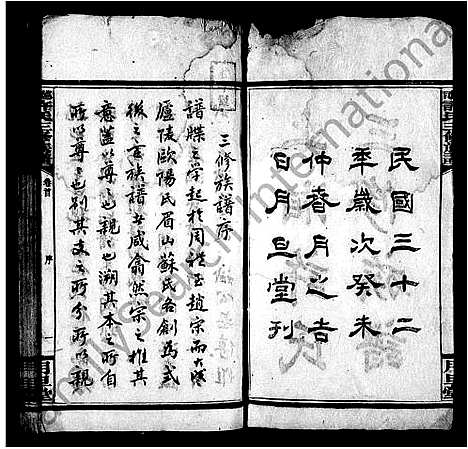 民國三十二
年歲次癸未
仲春月之吉
日月旦堂刊
三修族譜序
譜牒之學起於周禮至趙宋而大備
廬陵歐陽氏眉山蘇氏各創為式
後之言族譜者咸翕然宗之推其
意蓋尊尊也親親也溯其本之所自
時尊尊也別其支之所分所以親
卷首
序
月旦堂
FamilySearch International